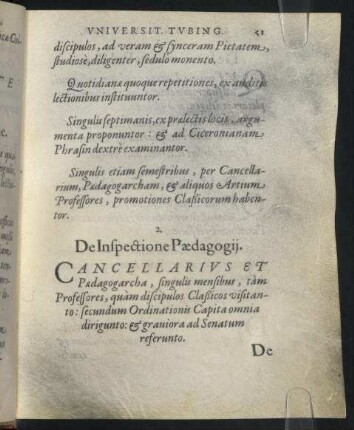 VNIVERSIT. TVBING. 51
discipulos, ad veram & synceram Pietatem,
studiosè, diligenter, sedulo monento.
Quotidianæ quoque repetitiones, ex auditis
lectionibus instituuntor.
Singulis septimanis, ex prælectis locis, argu-
menta proponuntor: & ad Ciceronianam
Phrasin dextrè examinantor.
Singulis etiam semestribus, per Cancella-
rium, Pædagogarcham, & aliquos Artium
Professores, promotiones Classicorum haben-
tor.
2.
De Inspectione Pædagogij.
CANCELLARIVS ET
Pædagogarcha, singulis mensibus, tàm
Professores, quàm discipulos Classicos visitan-
to: secundum Ordinationis Capita omnia
dirigunto: & graviora ad Senatum
referunto.
De